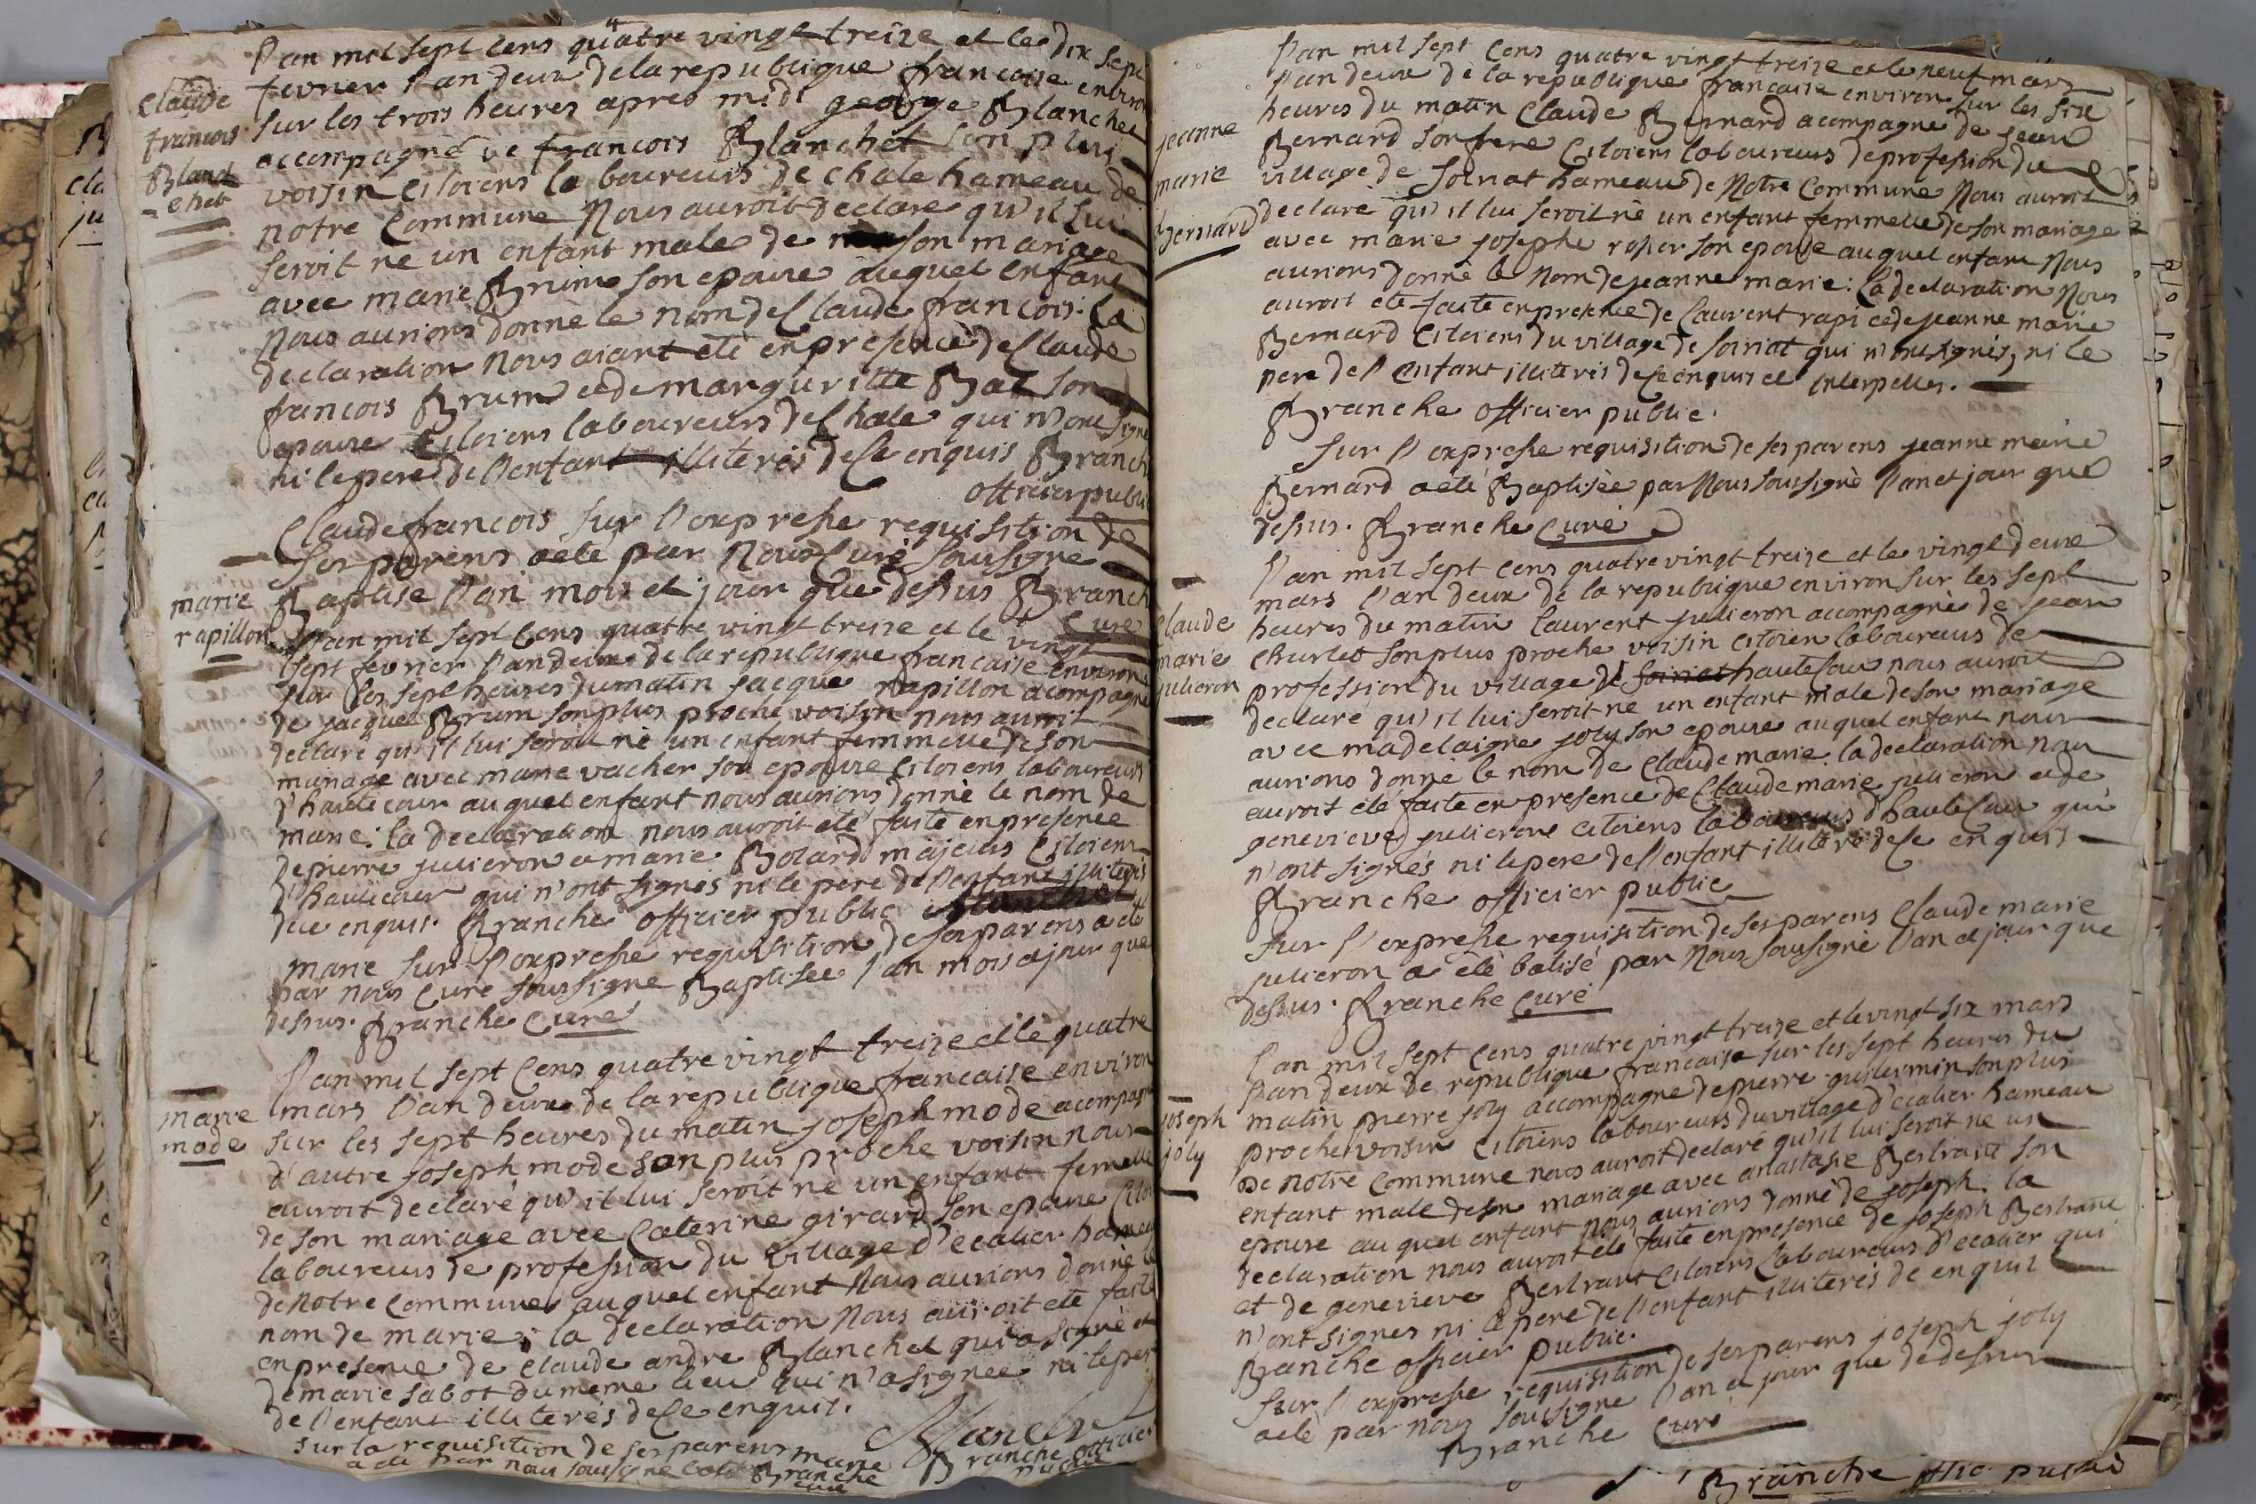 l'an mil sept cens quatre vingt treize et le dix sept
fevrier l'an deux de la republique francaise environ
sur les trois heures apres midi george Blanchet
accompagné de francois Blanchet son plus
voisin citoiens laboureurs de chale hameau de
notre commune Nous auroit declare qu'il lui
seroit ne un enfant male de son mariage
avec marie Brum son epouse auquel enfant
Nous aurions donne le nom de Claude francois. la
declaration nous aiant eté en presence de Claude
francois Brum et de margueritte Bal son
epouse citoiens laboureurs de Chale qui n'ont signe
ni le pere de l'enfant illiterés de ce enquis Branch
officier public
Claude
francois
Blan
-chet
Claude francois sur l'expresse requisition de
ses parens a eté par Nous Curé soussigné
Baptise l'an mois et jour que dessus Branch
Curé
marie
rapillon
l'an mil sept cens quatre vingt treize et le vingt
sept fevrier l'an deux de la republique francaise environ
sur les sept heures du matin jacque rapillon acompagné
de jacque Brum son plus proche voisin nous auroit
declaré qu'il lui seroit né un enfant femmelle de son
mariage avec marie vacher son epouse citoiens laboureurs
d'hautecour auquel enfant nous aurions donné le nom de
marie: la declaration nous auroit eté faite en presence
de pierre julieron et marie Bolard majeurs citoiens
d'hautecour qui n'ont signés ni le pere de l'enfant illiterés
de ce enquis. Branche officier public
marie sur l'expresse requisition de ses parens a eté
par nous Curé soussigné Baptisée l'an mois et jour que
dessus. Branche Curé
marie
mode
l'an mil sept cens quatre vingt treize et le quatre
mars l'an deux de la republique francaise environ
sur les sept heures du matin joseph mode acompagné
d'autre joseph mode son plus proche voisin nous
auroit declaré qu'il lui seroit né un enfant femelle
de son mariage avec Caterine girard son epouse citoi
laboureurs de profession du village d'ecalier hameau
de notre commune auquel enfant Nous aurions donné le
nom de marie; la declaration Nous auroit eté faite
en presence de claude andre Blanchet qui a signé et
de marie sabot du meme lieu qui n'a signée ni le pere
de l'enfant illiterés de ce enquis.
Blanchet
Branche officier
public
sur la requisition de ses parens marie
a eté par nous soussigné Branche
curé
l'an mil sept cens quatre vingt treize et le neuf mars
l'an deux de la republique francaise environ sur les six
heures du matin Claude Bernard acompagné de jean
Bernard son frere Citoiens laboureurs de profession du
village de Soiriat hameau de Notre Commune Nous auroit
declaré qu'il lui seroit né un enfant femmelle de son mariage
avec marie josephe son epouse auquel enfant Nous
aurions donné le Nom de jeanne marie: la declaration Nous
auroit eté faite en presence de laurent et de jeanne marie
Bernard Citoiens du village de soiriat qui n'ont signés, ni le
pere de l'enfant illiterés de ce enquis et interpelles.
Branche officier public.
jeanne
marie
Bernard
Sur l'expresse requisition de ses parens jeanne marie
Bernard a eté Baptisée par Nous soussigné l'an et jour que
dessus. Branche Curé
l'an mil sept cens quatre vingt treize et le vingt deux
mars l'an deux de la republique environ sur les sept
heures du matin laurent julieron accompagné de jean
Churlet son plus proche voisin citoien laboureurs de
profession du village de soiriat hautecour nous auroit
declaré qu'il lui seroit né un enfant male de son mariage
avec madelaigne joly son epouse auquel enfant nous
aurions donné le nom de Claude marie. la declaration nous
auroit eté faite en presence de Claude marie julieron et de
genevieve julieron citoiens laboureurs d'hautecour qui
n'ont signés ni le pere de l'enfant illiteré de ce enquis
Branche officier public
Claude
marie
julieron
Sur l'expresse requisition de ses parens Claude marie
julieron a été batisé par Nous soussigné l'an et jour que
dessus. Branche Curé
l'an mil sept cens quatre vingt treize et le vingt six mars
l'an deux de republique francaise sur les sept heures du
matin pierre joly accompagné de pierre guillermin son plus
proche voisin citoiens laboureurs du village d'ecalier hameau
de notre commune nous auroit declaré qu'il lui seroit né un
enfant male de son mariage avec anastasie Bertrant son
epouse auquel enfant nous aurions donné de joseph. la
declaration nous auroit eté faite en presence de joseph Bertrant
et de genevieve Bertrant citoiens laboureurs d'ecalier qui
n'ont signes ni le pere de l'enfant illiterés de enquis
Branche officier public.
joseph
joly
Sur l'expresse requisition de ses parens joseph joly
a eté par nous soussigne l'an et jour que de dessus
Branche Curé
Branche offic. public